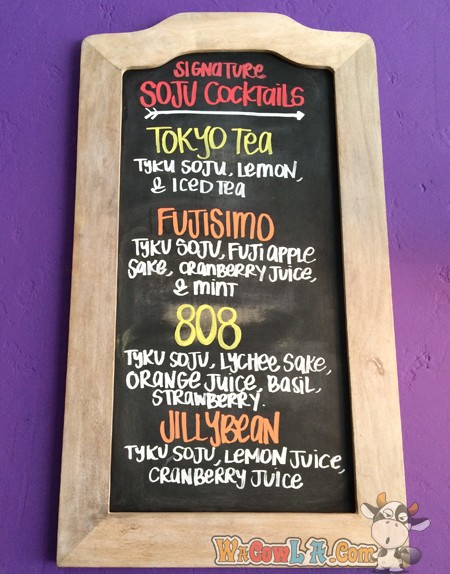 SIGNATURE
SOJU COCKTAILS
TOKYO TEA
TYKU SOJU, LEMON,
& ICED TEA
FUJISIMO
TYKU SOJU, FUJI APPLE
SAKE, CRANBERRY JUICE,
& MINT
808
TYKU SOJU, LYCHEE SAKE,
ORANGE JUICE, BASIL,
STRAWBERRY.
JILLYBEAN
TYKU SOJU, LEMON JUICE,
CRANBERRY JUICE
WACOWLA.COM